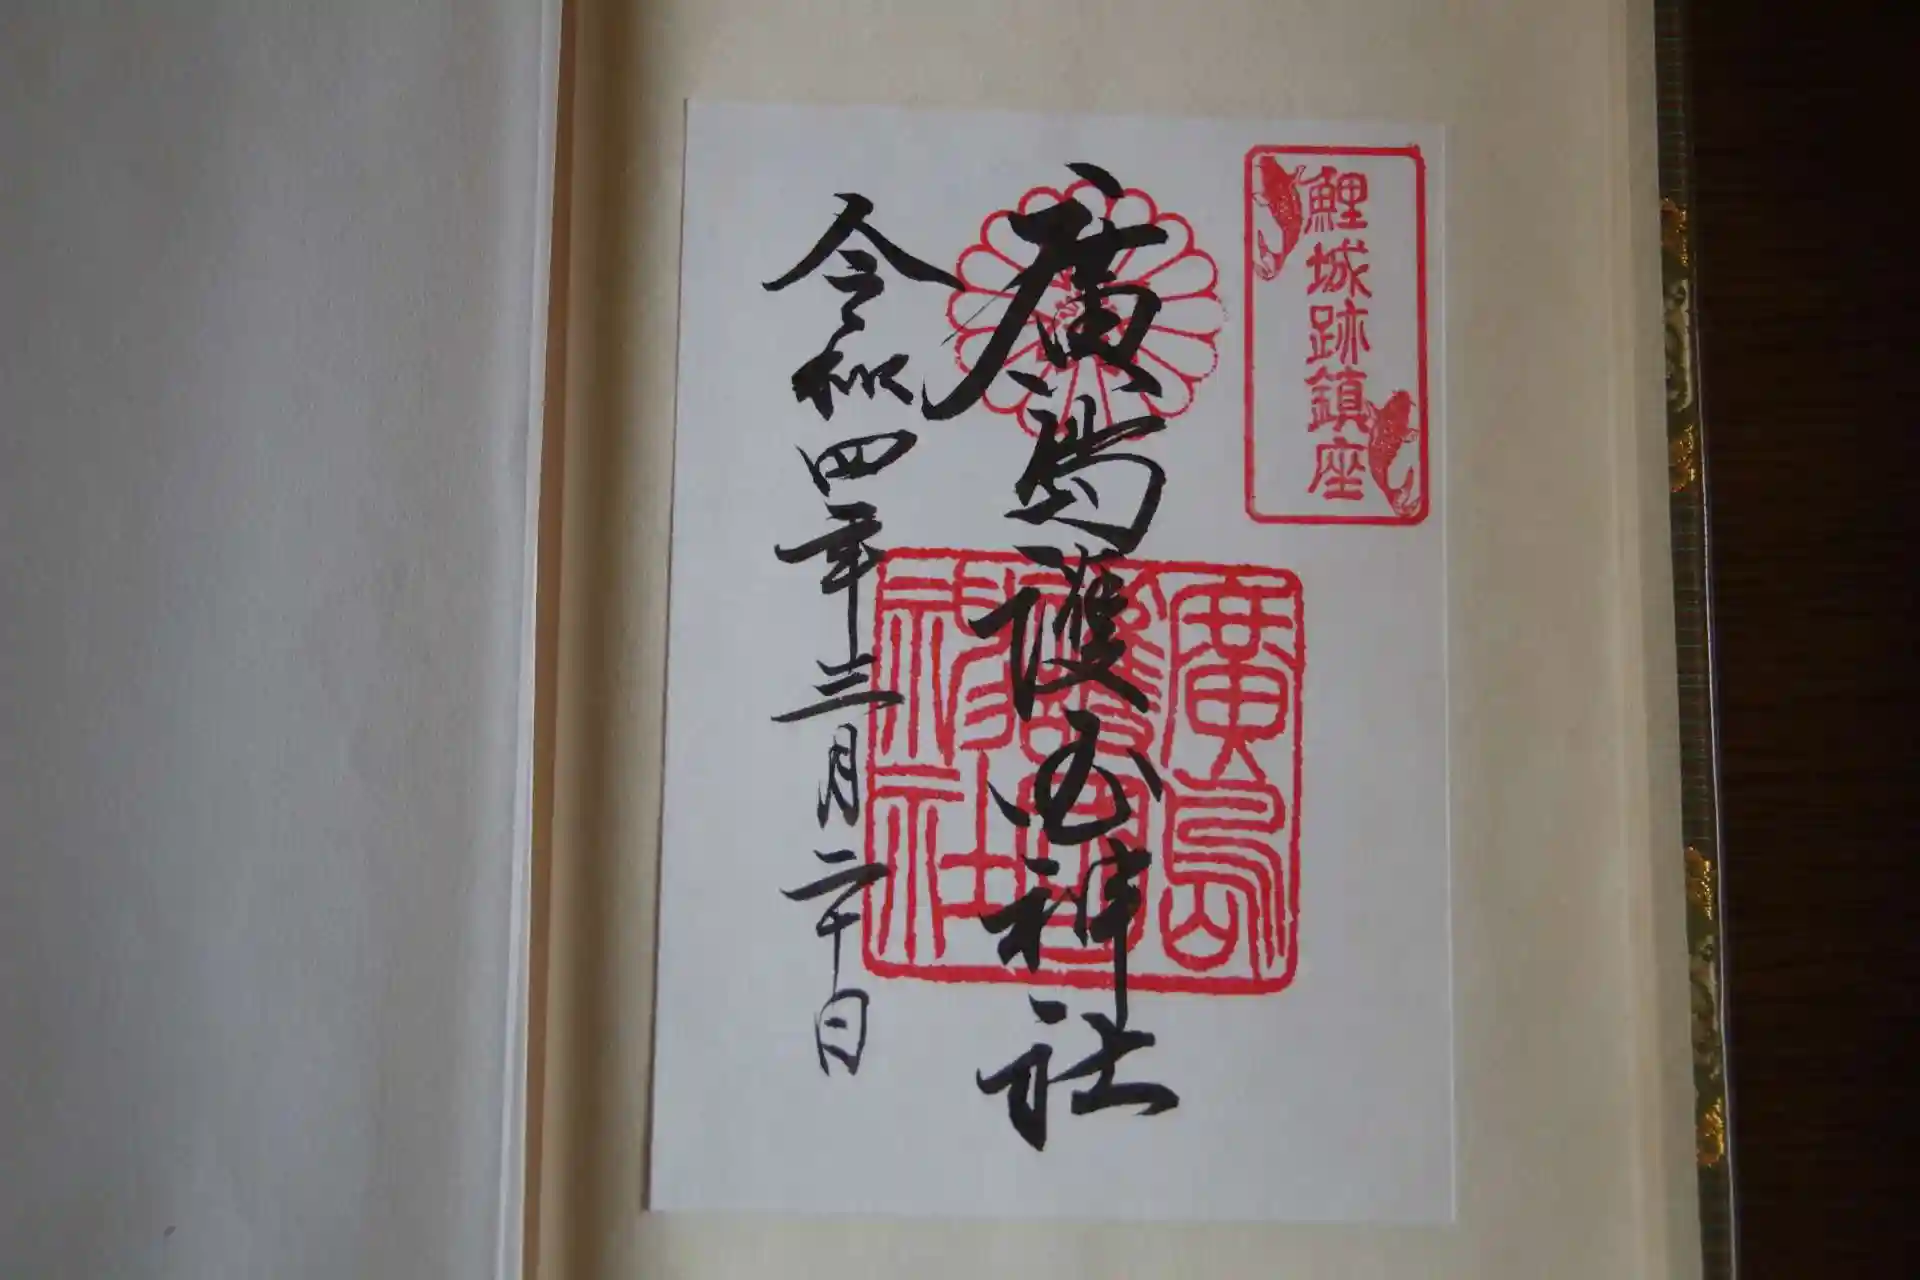 鯉城跡鎮座
廣島護國神社
廣島護国神社
令和四年三月二十日